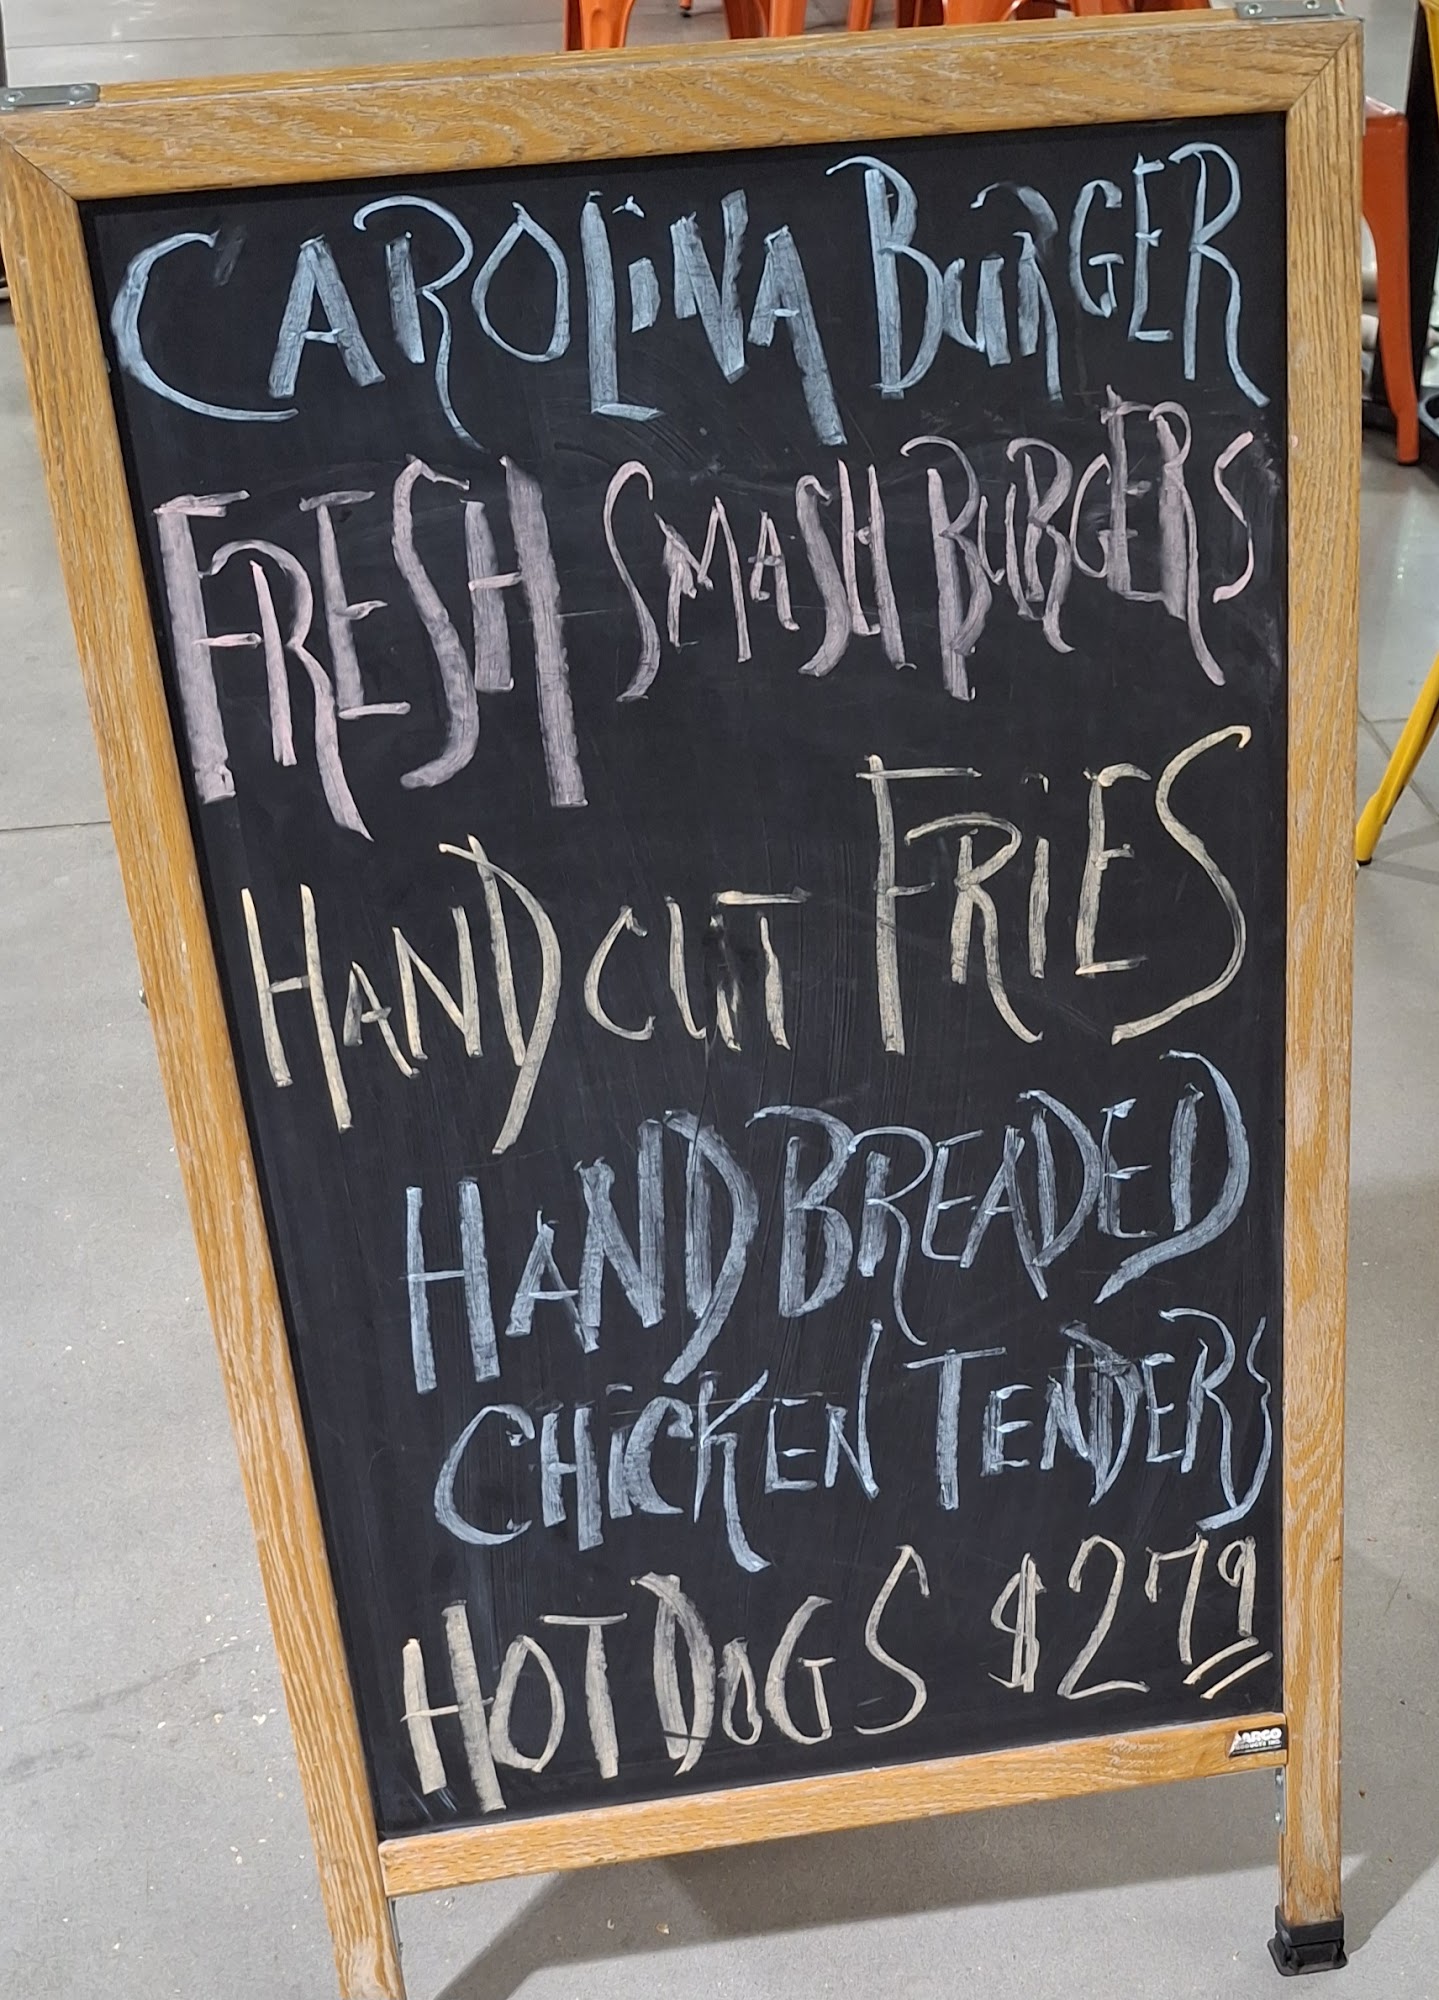 CAROLINA BURGER
FRESH SMASH BURGERS
HAND CUT FRIES
HAND BREADED
CHICKEN TENDERS
HOT DOGS $2 79
ARGO
PRODUCTS INC.